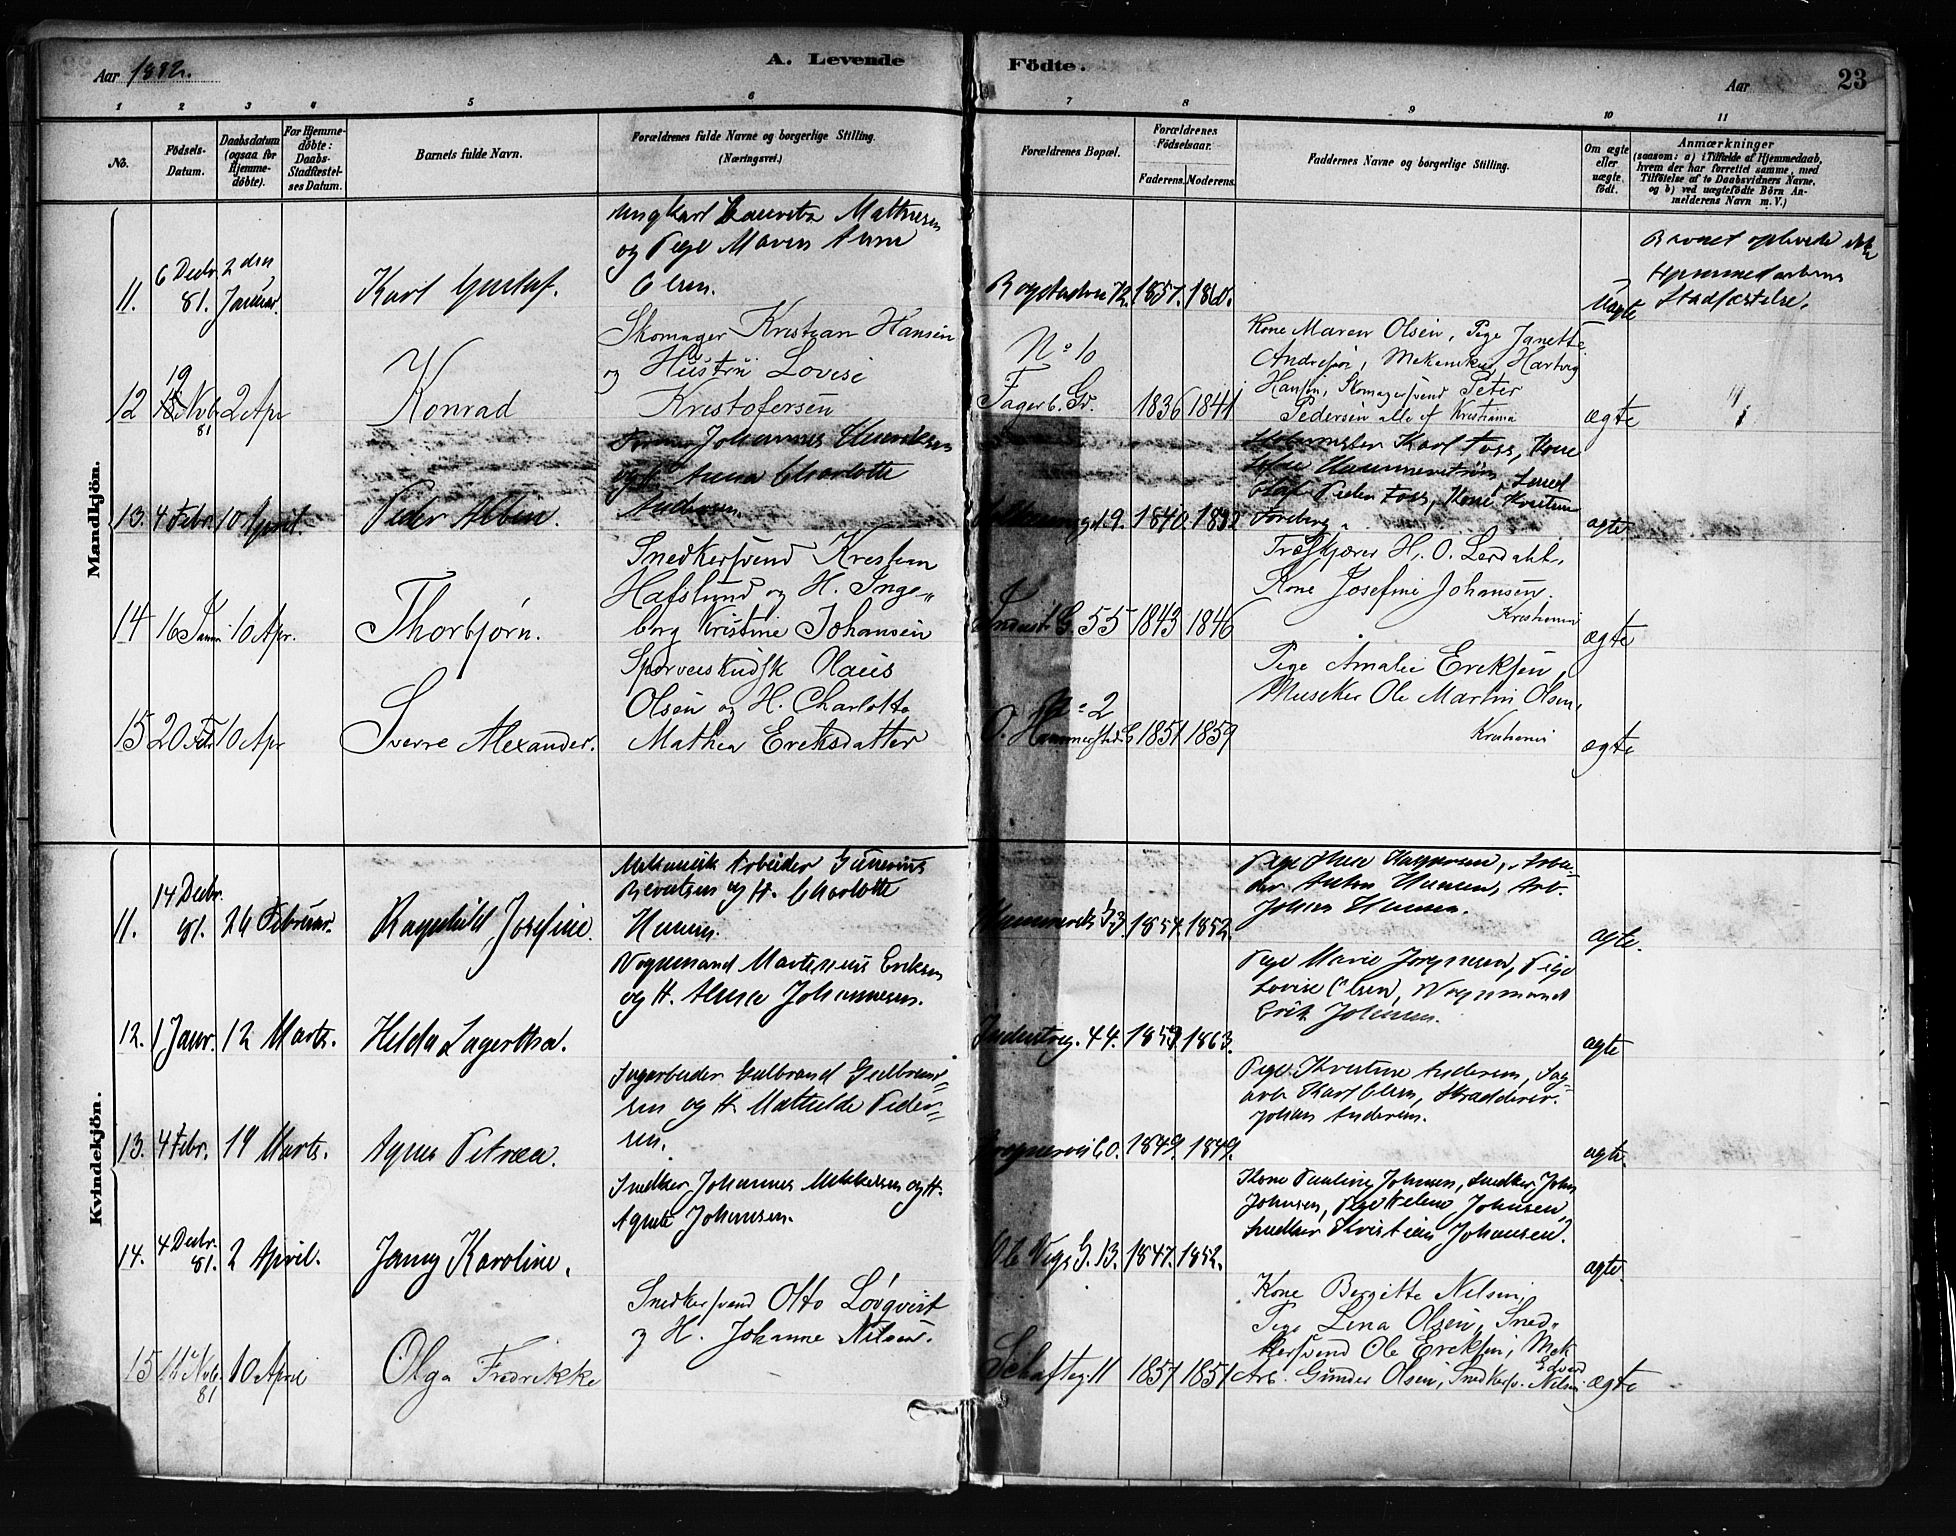 Aar 1882.
A. Levende Födte.
Aar
23
1 2 3 4 5 6 7 8 9 10 11
No.
Födsels-Datum.
Daabsdatum (ogsaa for Hjemmedöbte).
For Hjemmedöbte: Daabs-Stadfæstelses Datum.
Barnets fulde Navn.
Forældrenes fulde Navne og borgerlige Stilling. (Næringsvei.)
Forældrenes Bopæl.
Forældrenes Födselsaar.
Faderens. Moderens.
Faddernes Navne og borgerlige Stilling.
Om ægte eller uægte födt.
Anmærkninger
(saasom: a) i Tilfælde af Hjemmedaab, hvem der har forrettet samme, med Tilföielse af to Daabsvidners Navne, og b) ved uægtefödte Börn Anmelderens Navn m. V.)
Mandkjön.
11. 6 Decbr. 81. 2den Januar. Karl Gustaf.
Ungkarl Lauritz Mathiesen
og Pige Maren Anna
Olsen.
1857. 1860.
Uægte
Barnet oplevede ikke
Hjemmedaabens
Stadfæstelse.
12 19 Nvb 81 2 Apr Konrad
Skomager Kristian Hansen
og Hustru Lovise
Kristofersen
No 10
Fagerb. Gd. 1836 1841
Kone Maren Olsen, Pige Janette
Hansen, Skomagersvend Peter
Pedersen alle af Kristiania
ægte
13. 4 Febr. 10 April. Peder Albin.
Johannes Henriksen
og H. Anna Charlotte
Andersen.
9. 1840.
Karl Foss, Kone
Olaf Peder Foss, Kone
ægte
14 16 Januar 10 Apr. Thorbjörn.
Snedkersvend Kristian
Hafslund og H. Inge-
borg Kristine Johansen
Industri G. 55 1843 1846
H. O. Lerdahl,
Kone Josefine Johansen.
Kristiania
ægte
15 20 Feb 10 Apr Sverre Alexander.
Sporveiskudsk Hans
Olsen og H. Charlotte
Mathea Eriksdatter
No 2
O. Hammerstads G 1851 1859
Pige Amalie Eriksen,
Musiker Ole Martin Olsen,
Kristiania
ægte
Kvindekjön.
11. 14 Decbr. 81. 26 Februar. Ragnhild Josefine.
Mekanisk Arbeider Gunerius
Berntsen og H. Charlotte
Hansen.
1854. 1852.
Pige Thea Kaspersen, Arbei-
der Anton Hansen, Arb.
Johan Hansen.
ægte.
12. 1 Janr. 12 Marts. Hilda Lagertha.
Vognmand Martinius Eriksen
og H. Anna Johannesen.
Industrig. 44. 1859. 1863.
Pige Marie Jørgensen, Pige
Lovise Olsen, Vognmand
Erik Johansen.
ægte
13. 4 Febr. 19 Marts. Agnes Petrea.
Sagarbeider Gulbrand Gulbrand-
sen og H. Mathilde Peder-
sen.
1849. 1849.
Pige Kristine Andersen, Sag-
arb. Karl Olsen, Skrædder
Johan Andersen.
ægte.
14. 4 Decbr. 81. 2 April. Jenny Karoline.
Snedker Johannes Mikkelsen og H.
Agnete Johansen.
Ole Vigs G. 13. 1847. 1852.
Kone Pauline Johnsen, Snedker John
Johnsen, Pige Helene Johnsen,
Snedker Kristian Johansen.
ægte.
15 11 Nvb. 81 10 April Olga Fredrikke
Snedkersvend Otto Lövqvist
og H. Johanne Nilsen.
Schafteg. 11 1857 1851
Kone Birgitte Nilsen,
Pige Lena Olsen, Sned-
kersvend Ole Eriksen, Mek
Arb. Gunder Olsen, Snedkersv. Edvard Nilsen.
ægte